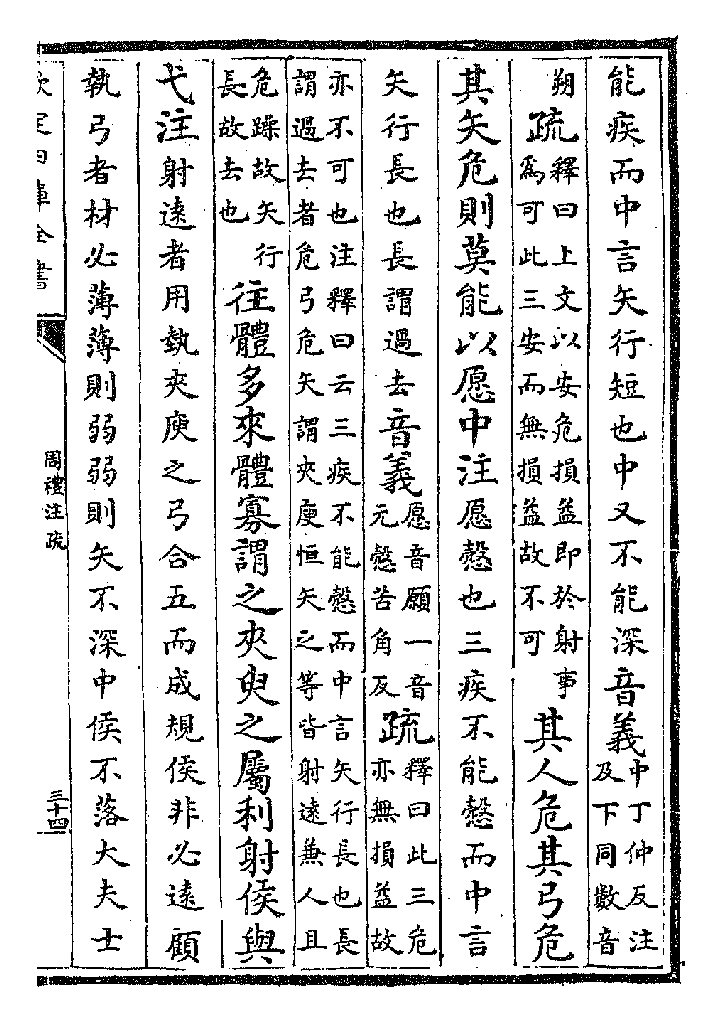 能疾而中言矢行短也中又不能深音義中丁仲反注及下同數音
朔疏釋曰上文以安危損益即於射事爲可此三安而無損益故不可其人危其弓危
其矢危則莫能以愿中注愿慤也三疾不能慤而中言
矢行長也長謂過去音義愿音願一音元慤苦角反疏釋曰此三危亦無損益故
亦不可也注釋曰云三疾不能慤而中言矢行長也長謂過去者危弓危矢謂夾庾恒矢之等皆射遠兼人且
危躁故矢行長故去也往體多來體寡謂之夾臾之屬利射侯與
弋注射遠者用執夾庾之弓合五而成規侯非必遠顧
執弓者材必薄薄則弱弱則矢不深中侯不落大夫士
欽定四庫全書
周禮注疏
三十四